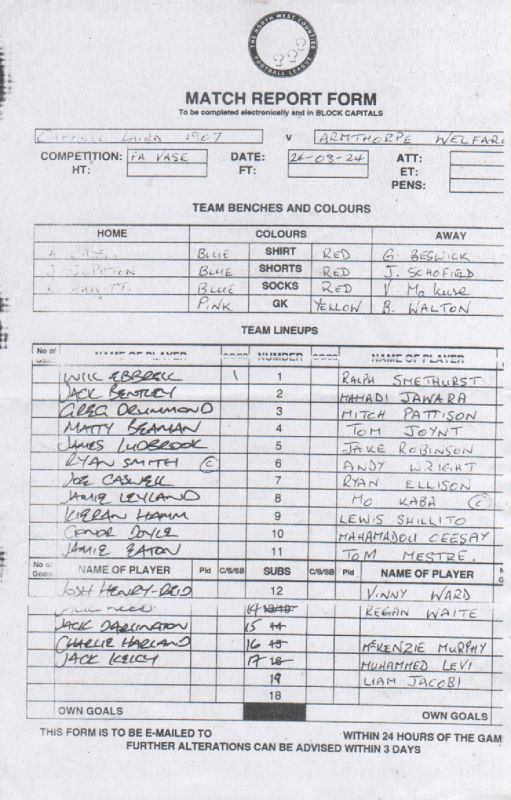 THE NORTH WEST COUNTIES FOOTBALL LEAGUE
MATCH REPORT FORM
To be completed electronically and in BLOCK CAPITALS
LAIRD 1907 v ARMTHORPE WELFARE
COMPETITION: FA VASE DATE: 24-08-24 ATT:
HT: FT: ET:
PENS:
TEAM BENCHES AND COLOURS
HOME COLOURS AWAY
BLUE SHIRT RED G. BESWICK
BLUE SHORTS RED J. SCHOFIELD
BLUE SOCKS RED
PINK GK YELLOW B. WALTON
TEAM LINEUPS
No of NAME OF PLAYER NUMBER NAME OF PLAYER
WILL EBBRELL 1 1 RALPH SMETHURST
JACK BENTLEY 2 MAMADI JAWARA
GREG DRUMMOND 3 MITCH PATTISON
MATTY BEAMAN 4 TOM JOYNT
JAMES LUDBROOK 5 JAKE ROBINSON
RYAN SMITH C 6 ANDY WRIGHT
JOE CASWELL 7 RYAN ELLISON
JAMIE LEYLAND 8 MO KABA C
KIERAN HAMM 9 LEWIS SHILLITO
CONOR DOYLE 10 MAHAMADOU CEESAY
JAMIE EATON 11 TOM MESTRE.
No of Goals NAME OF PLAYER Pld C/S/SB SUBS C/S/SB Pld NAME OF PLAYER
JOSH HENRY-REID 12 VINNY WARD
14 REGAN WAITE
JACK DARLINGTON 15 14
CHARLIE HARLAND 16 15 MCKENZIE MURPHY
JACK KELLY 17 16 MUHAMMED LEVI
19 LIAM JACOBI
18
OWN GOALS OWN GOALS
THIS FORM IS TO BE E-MAILED TO WITHIN 24 HOURS OF THE GAM
FURTHER ALTERATIONS CAN BE ADVISED WITHIN 3 DAYS